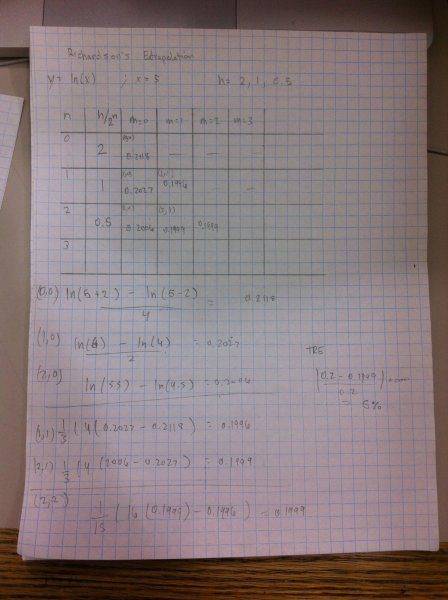 Richardson's Extrapolation
y = ln(x) ; x = 5 h = 2, 1, 0.5
n h/2ⁿ m=0 m=1 m=2 m=3
0 2 (0,0) 0.2118 — — —
1 1 (1,0) 0.2027 (1,1) 0.1996 — —
2 0.5 (2,0) 0.2006 (2,1) 0.1999 0.1999
3
(0,0) ln(5+2) - ln(5-2) / 4 = 0.2118
(1,0) ln(6) - ln(4) / 2 = 0.2027
(2,0) ln(5.5) - ln(4.5) = 0.2006
TRE
(0.2 - 0.1999) / 0.2
= 5%
(1,1) 1/3 (4(0.2027 - 0.2118) = 0.1996
(2,1) 1/3 (4(2006 - 0.2027) = 0.1999
(2,2)
1/15 (16(0.1999) - 0.1996) = 0.1999